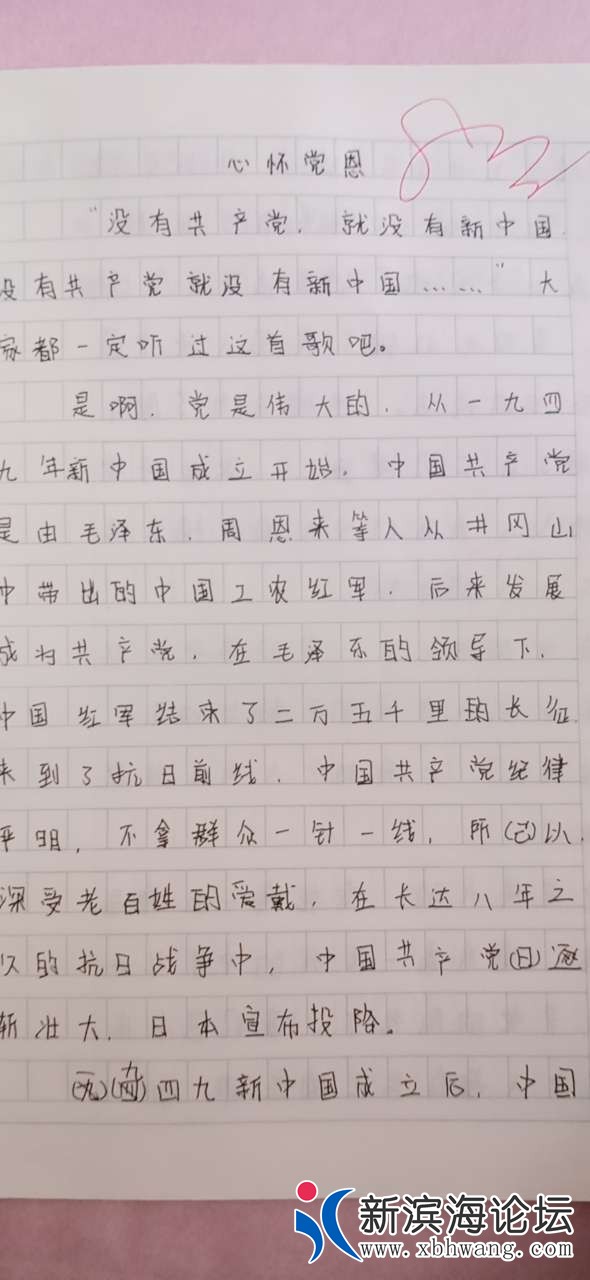 心怀党恩
“没有共产党，就没有新中国
没有共产党就没有新中国……”大
家都一定听过这首歌吧。
是啊，党是伟大的，从一九四
九年新中国成立开始，中国共产党
是由毛泽东、周恩来等人从井冈山
中带出的中国工农红军，后来发展
成为共产党，在毛泽东的领导下，
中国红军结束了二万五千里的长征
来到了抗日前线，中国共产党纪律
严明，不拿群众一针一线，所以
深受老百姓的爱戴，在长达八年之
久的抗日战争中，中国共产党(日)逐
渐壮大，日本宣布投降。
四九新中国成立后，中国
新滨海论坛
www.xbhwang.com